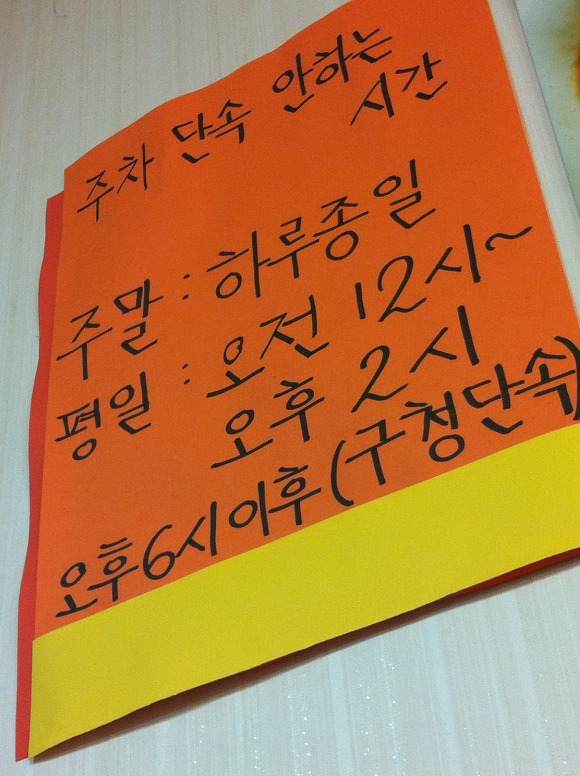 주차 단속 안하는
시간
주말 : 하루종일
평일 : 오전 12시~
오후 2시
오후6시이후(구청단속)